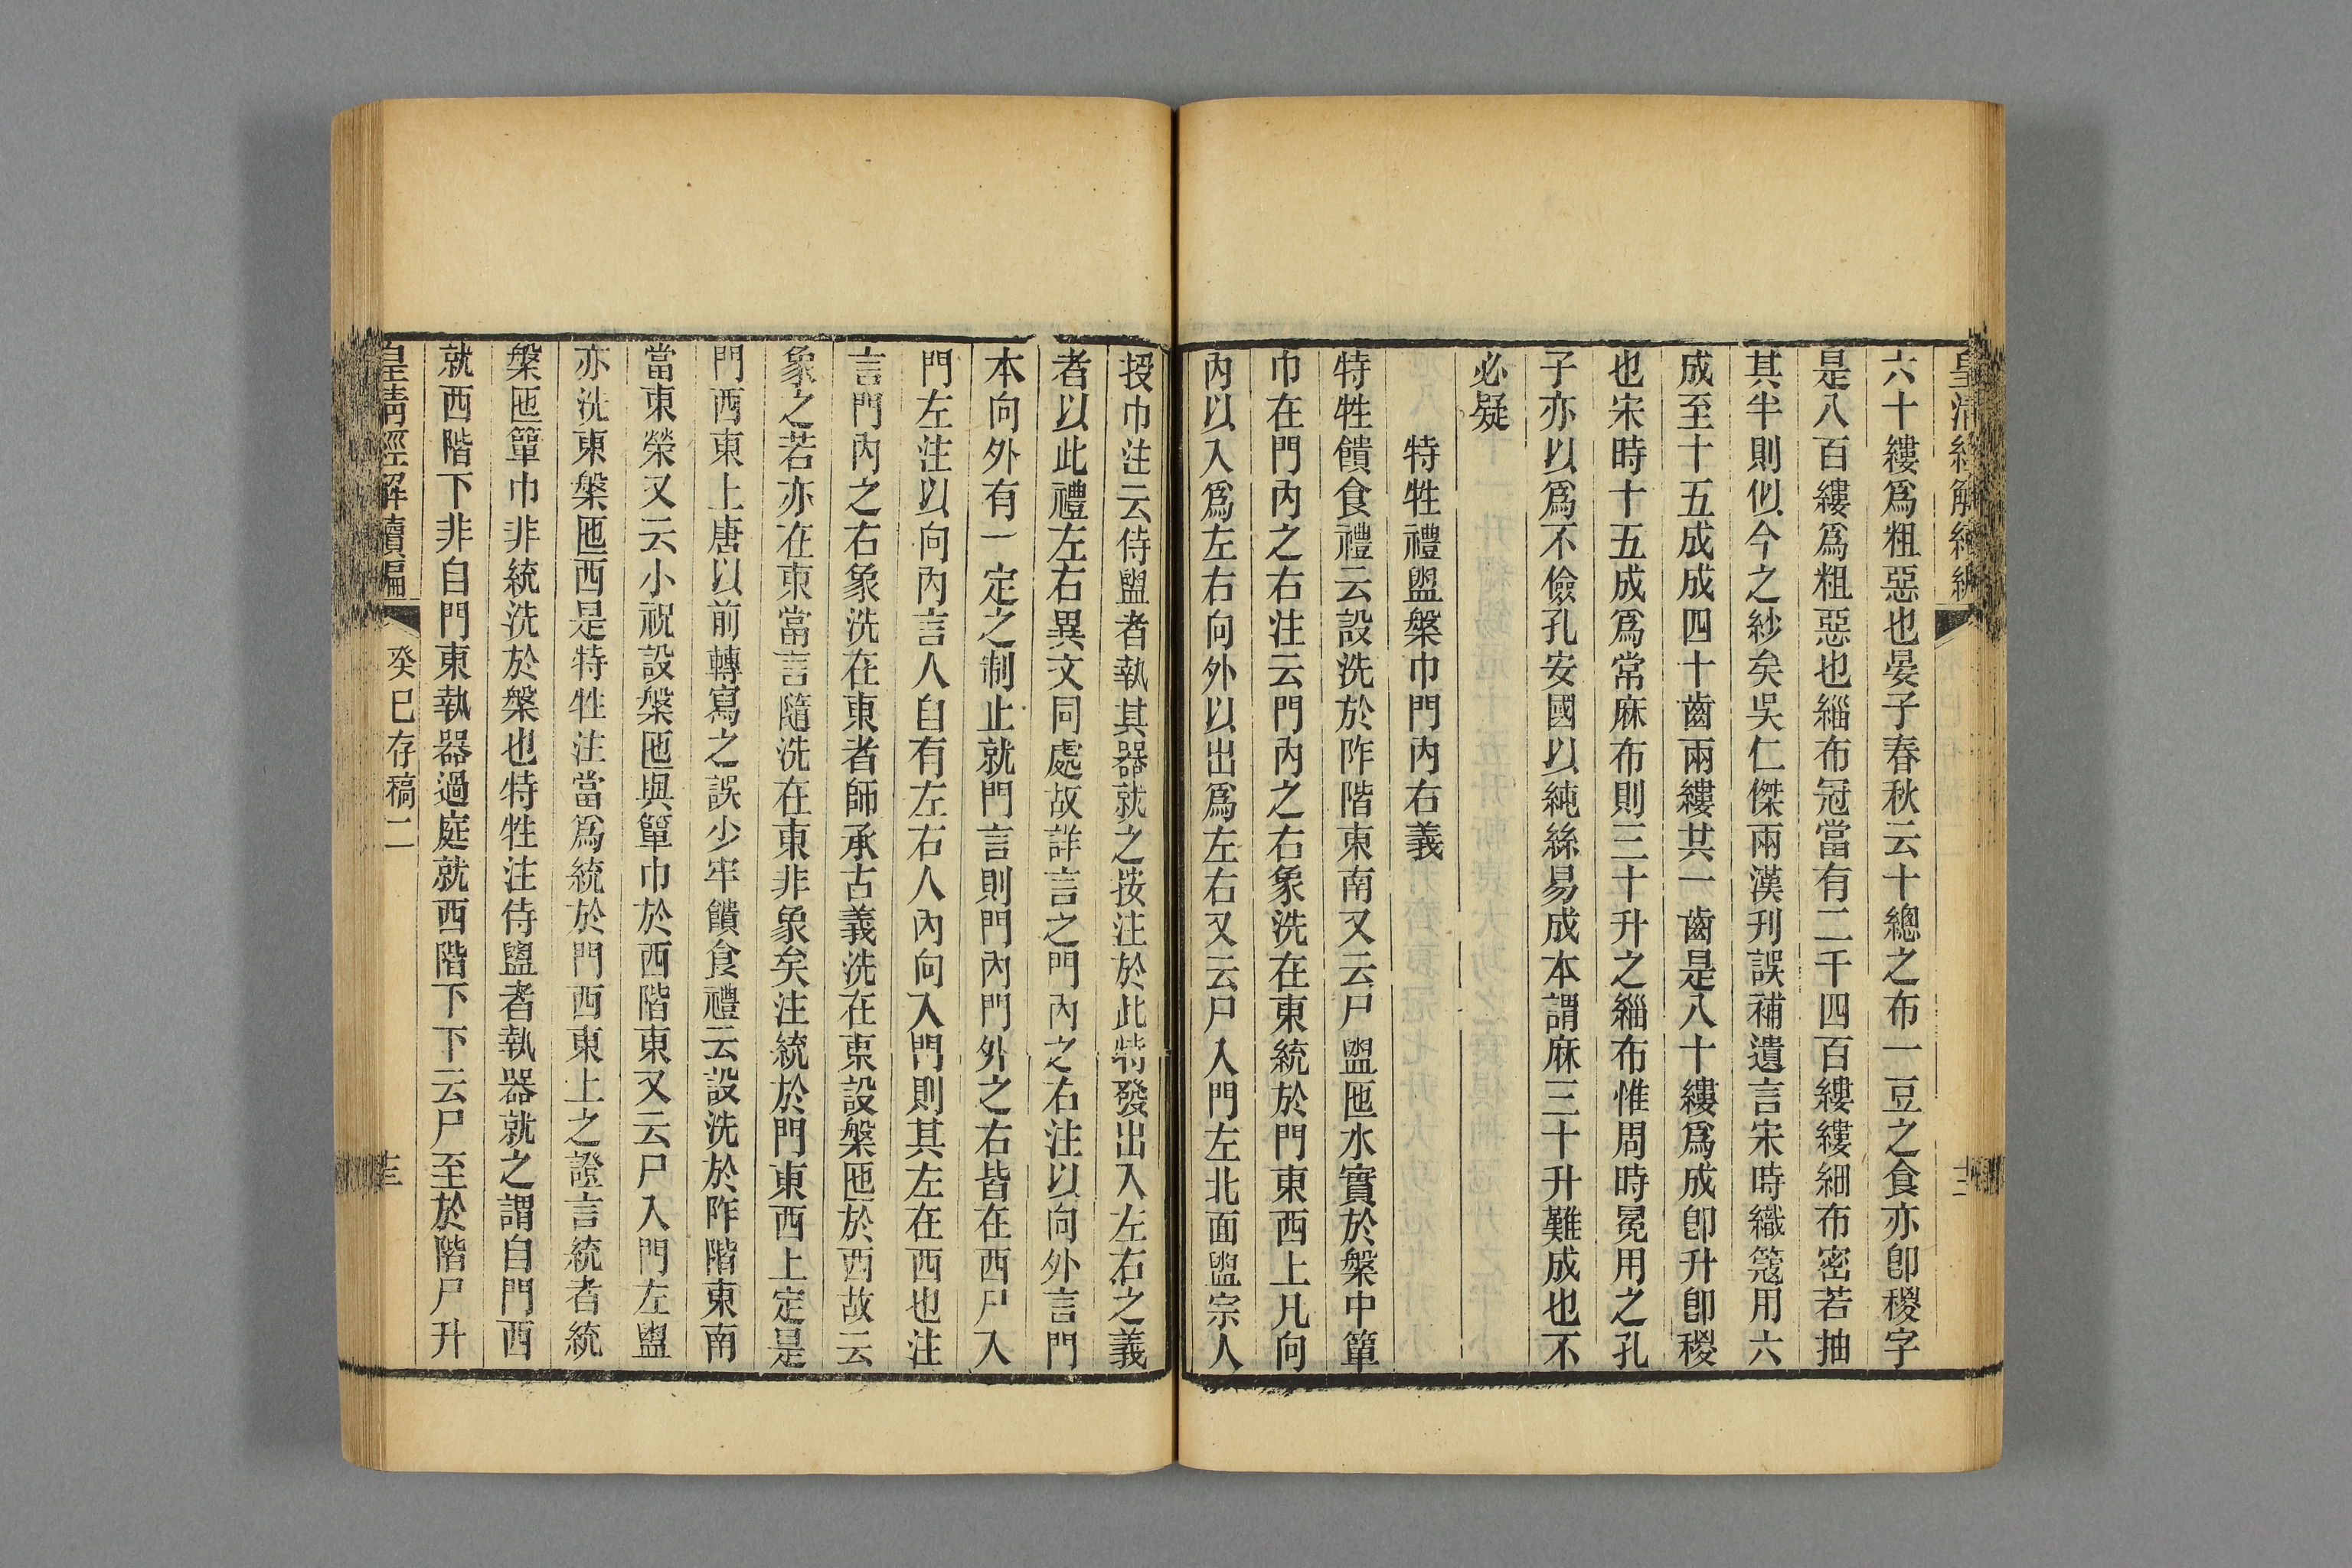 皇清經解續編
六十縷爲粗惡也晏子春秋云十總之布一豆之食亦卽稯字
是八百縷爲粗惡也緇布冠當有二千四百縷縷細布密若抽
其半則似今之紗矣吳仁傑兩漢刊誤補遺言宋時織簆用六
成至十五成成四十齒兩縷其一齒是八十縷爲成卽升卽稯
也宋時十五成爲常麻布則三十升之緇布惟周時冕用之孔
子亦以爲不儉孔安國以純絲易成本謂麻三十升難成也不
必疑
特牲禮盥槃巾門內右義
特牲饋食禮云設洗於阼階東南又云尸盥匜水實於槃中簞
巾在門內之右注云門內之右象洗在東統於門東西上凡向
內以入爲左右向外以出爲左右又云尸入門左北面盥宗人
授巾注云侍盥者執其器就之按注於此特發出入左右之義
者以此禮左右異文同處故詳言之門內之右注以向外言門
本向外有一定之制止就門言則門內門外之右皆在西尸入
門左注以向內言人自有左右人內向入門則其左在西也注
言門內之右象洗在東者師承古義洗在東設槃匜於西故云
象之若亦在東當言隨洗在東非象矣注統於門東西上定是
門西東上唐以前轉寫之誤少牢饋食禮云設洗於阼階東南
當東榮又云小祝設槃匜與簞巾於西階東又云尸入門左盥
亦洗東槃匜西是特牲注當爲統於門西東上之證言統者統
槃匜簞巾非統洗於槃也特牲注侍盥者執器就之謂自門西
就西階下非自門東執器過庭就西階下下云尸至於階尸升
皇清經解續編 癸巳存稿二